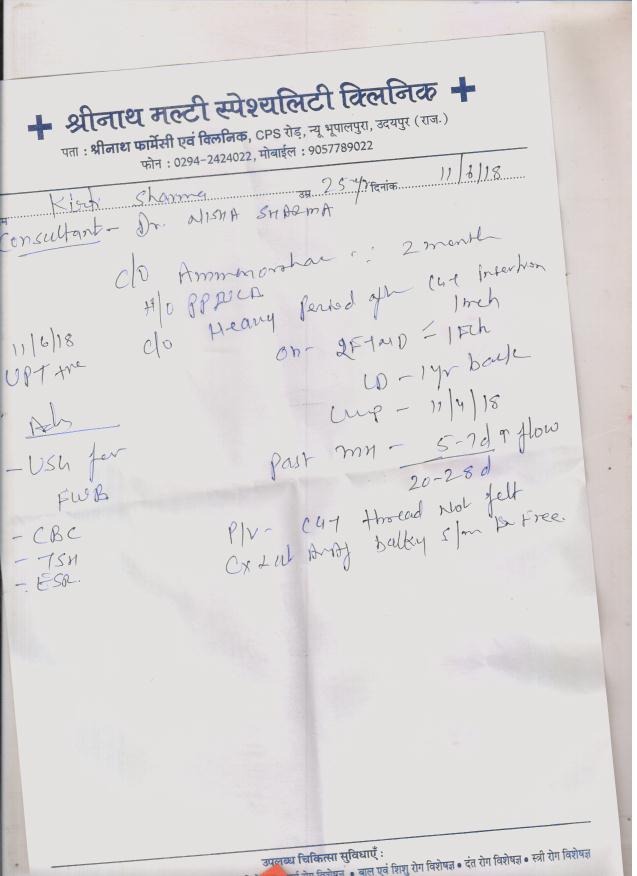 श्रीनाथ मल्टी स्पेश्यलिटी क्लिनिक
पता : श्रीनाथ फार्मेसी एवं क्लिनिक, CPS रोड़, न्यू भूपालपुरा, उदयपुर (राज.)
फोन : 0294-2424022, मोबाईल : 9057789022
म Sharma उम्र 25 yr दिनांक 11/6/18
Consultant - Dr. NISHA SHARMA
C/O 2 month
H/O
C/O Heavy Period Insertion
11/6/18
UPT +ve
LD - 1 yr back
LMP - 11/4/18
Adv
- USG for
FWB
Past MH - 5-7d ↑ flow
20-28d
- CBC
- TSH
- ESR
P/V - thread Not felt
Cx bulky Free.
उपलब्ध चिकित्सा सुविधाएँ :
रोग विशेषज्ञ • बाल एवं शिशु रोग विशेषज्ञ • दंत रोग विशेषज्ञ • स्त्री रोग विशेषज्ञ